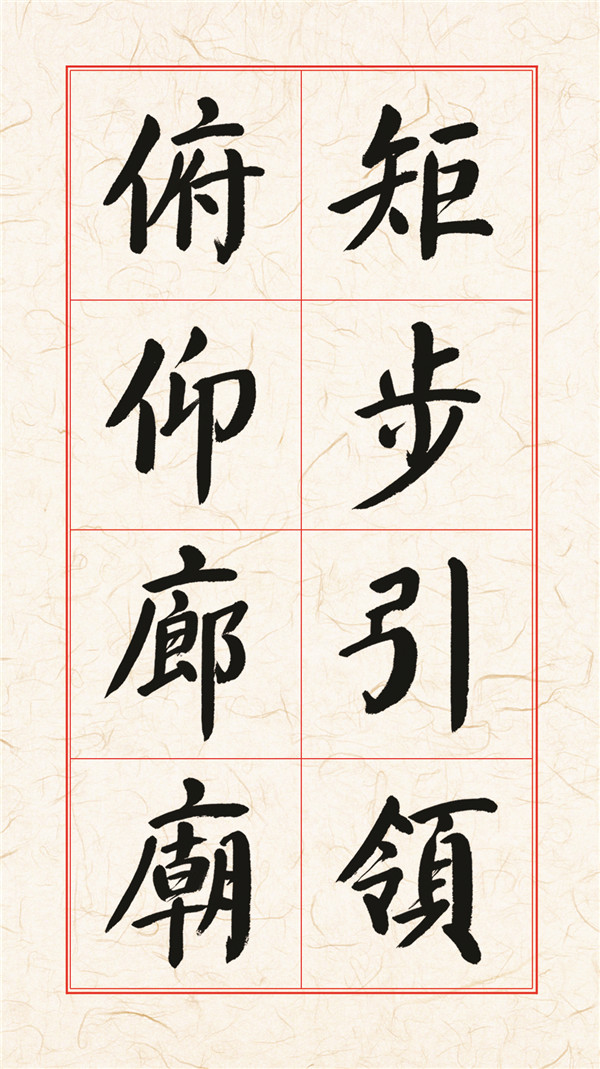 矩步引領
俯仰廊廟